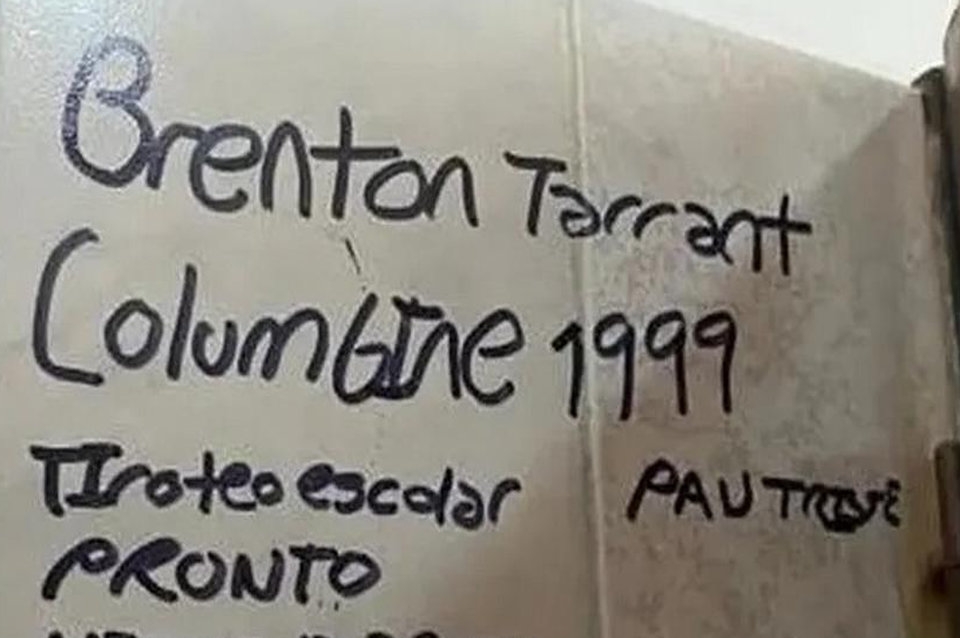 Brenton Tarrant
Columbine 1999
TIroteo escolar PAU
PRONTO